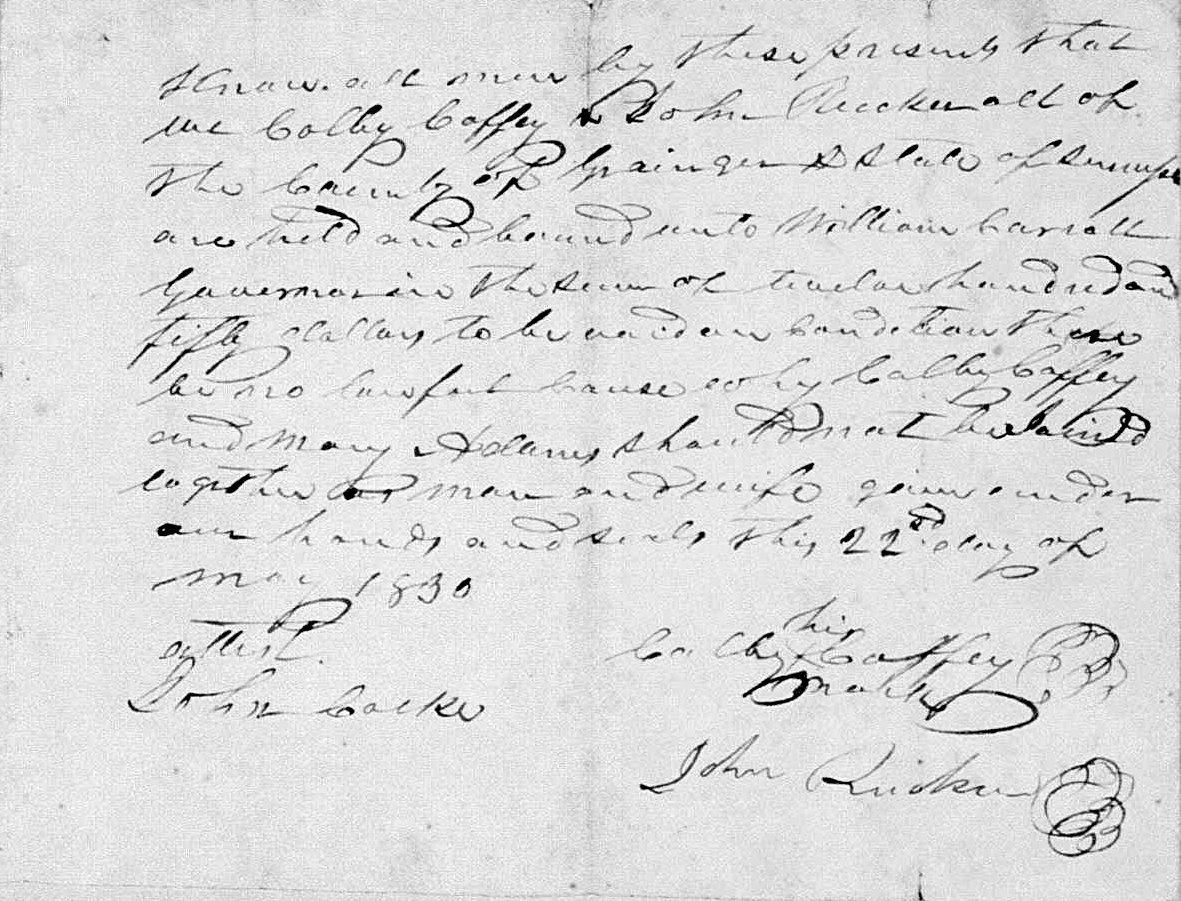 Know all men by these presents that
we Colby Coffey & John Rucker all of
the County of Grainger & State of
are held and bound unto William Carroll
Governor in the sum of twelve hundred and
fifty dollars to be void on Condition there
be no lawful Cause why Colby Coffey
and Mary Adams should not be
together as man and wife given under
our hands and seals this 22nd day of
May 1830
attest
his
Colby Coffey
mark
John Cocke
John Rucker